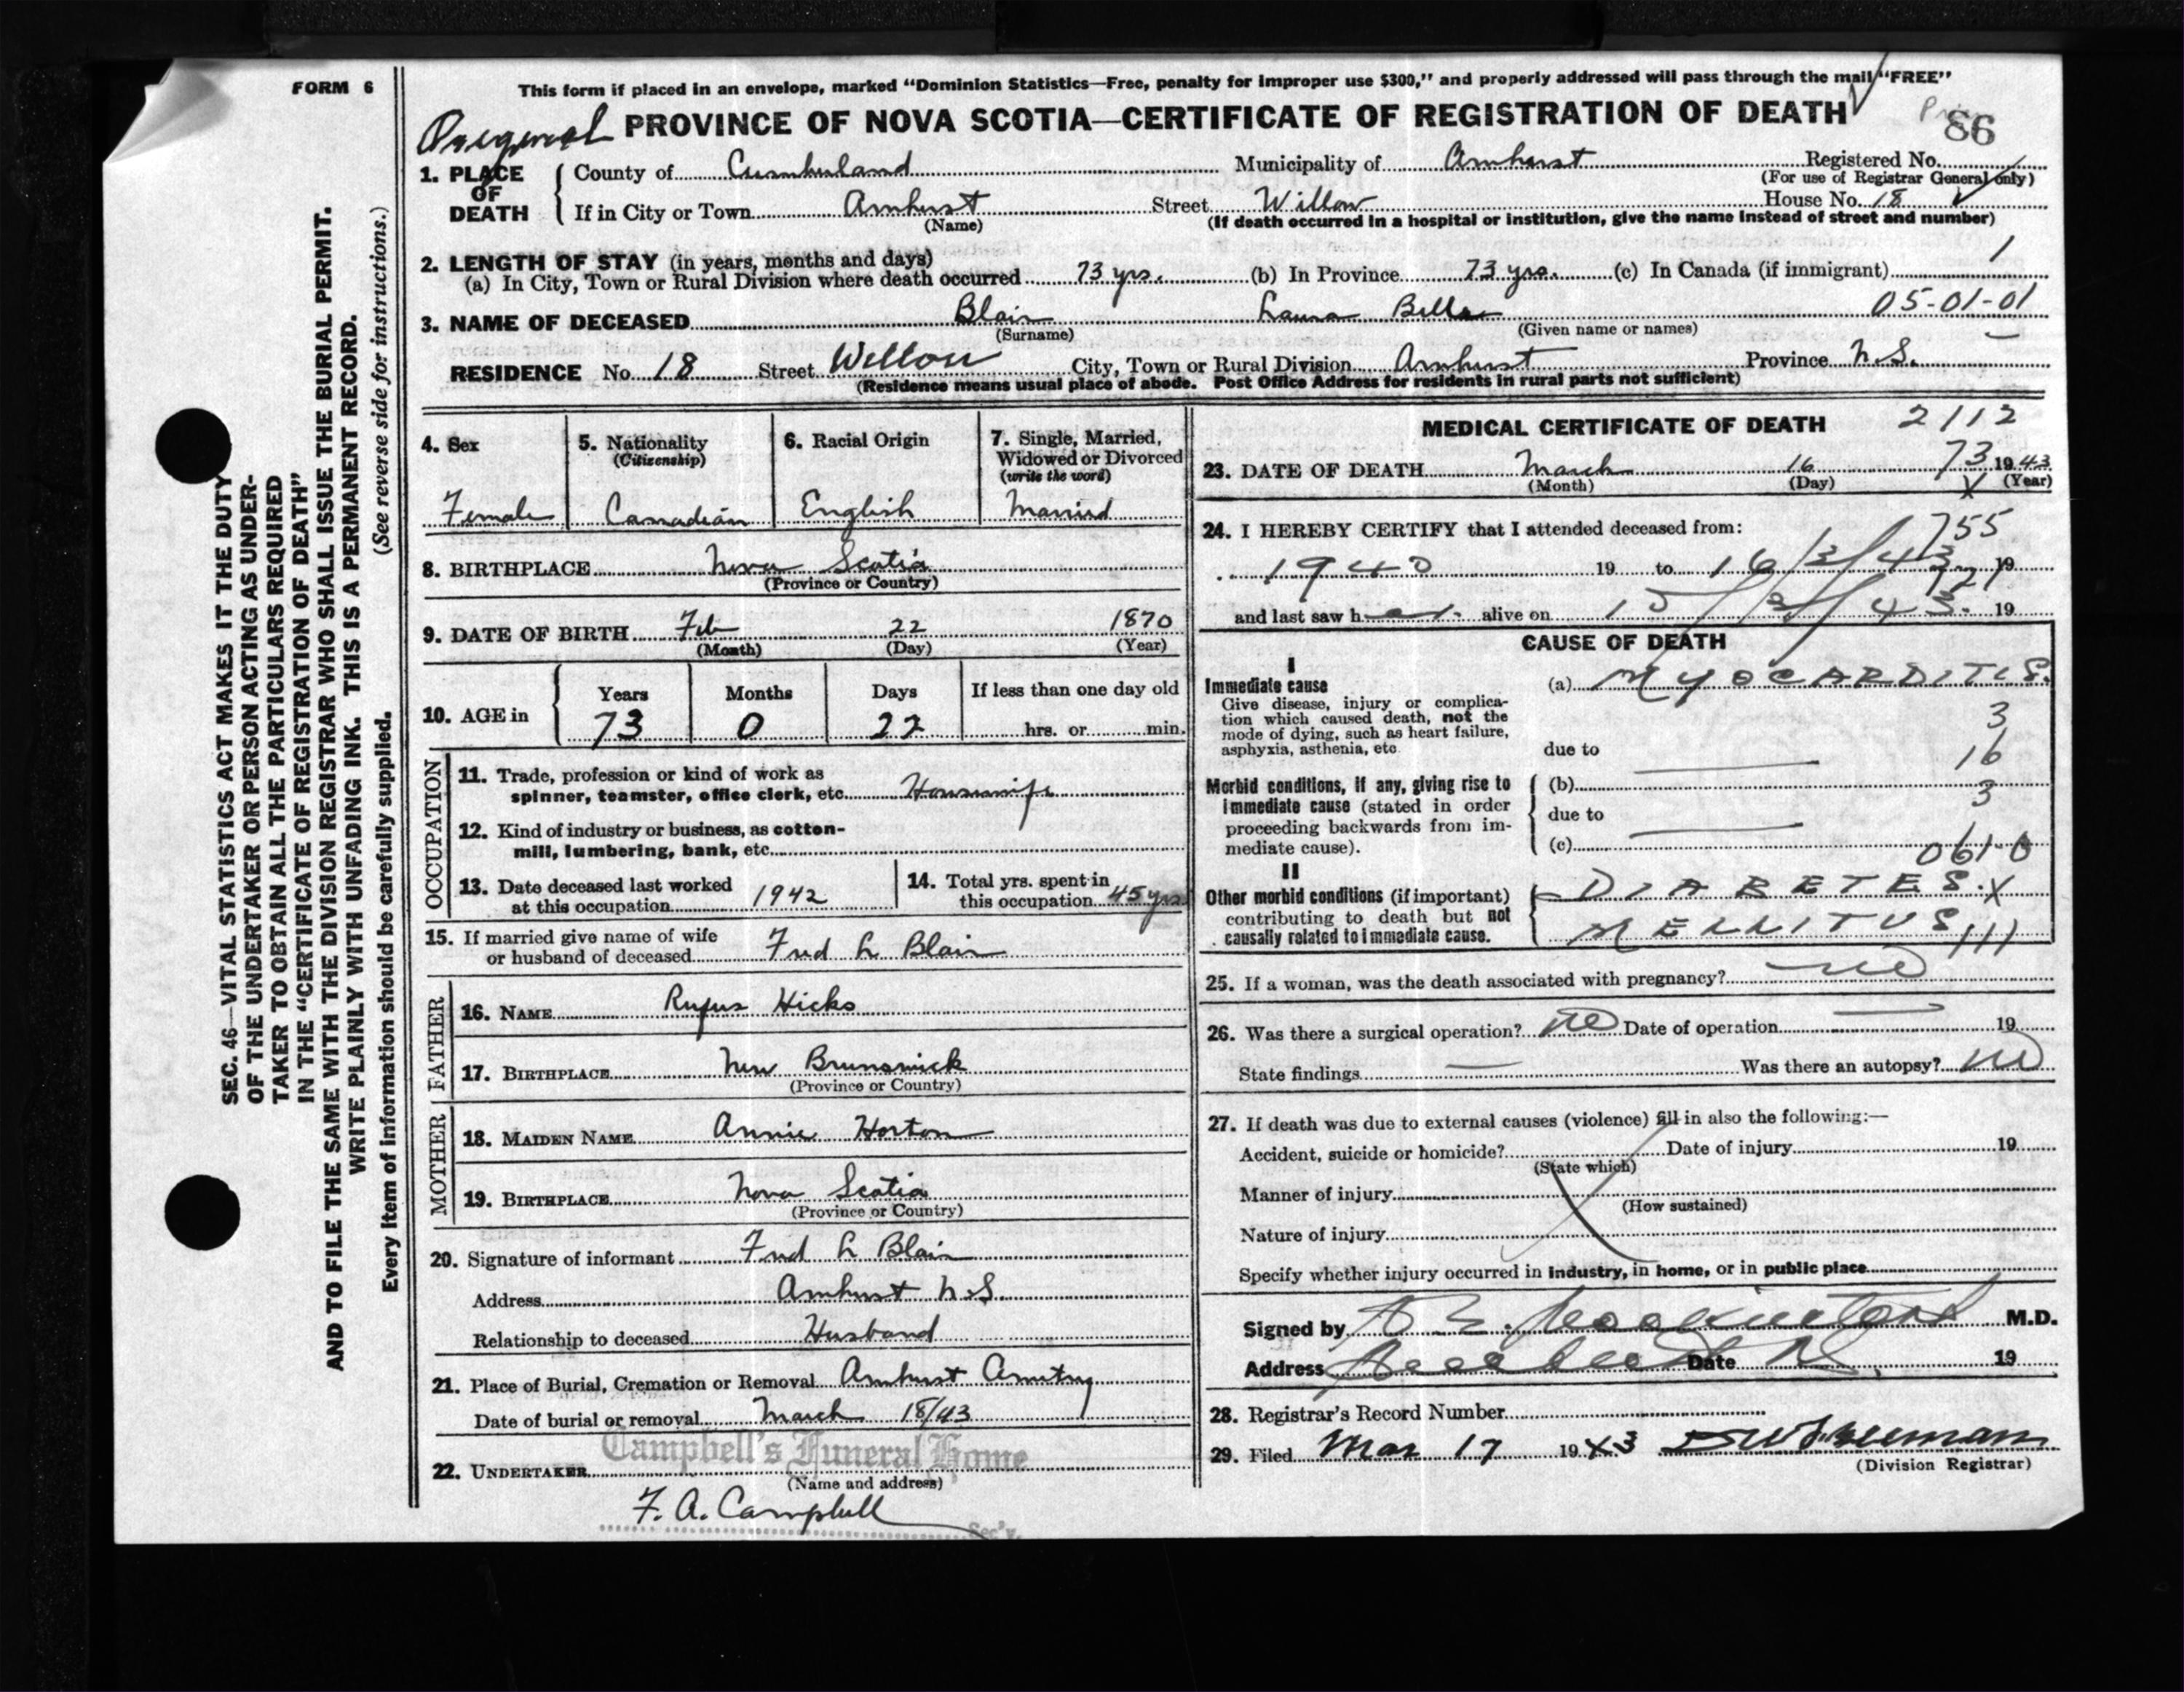 FORM 6
This form if placed in an envelope, marked "Dominion Statistics—Free, penalty for improper use $300," and properly addressed will pass through the mail "FREE"
PROVINCE OF NOVA SCOTIA—CERTIFICATE OF REGISTRATION OF DEATH
86
1. PLACE OF DEATH
County of Cumberland Municipality of Amherst Registered No.
(For use of Registrar General only)
If in City or Town Amherst Street Willow House No. 18
(Name) (If death occurred in a hospital or institution, give the name instead of street and number)
2. LENGTH OF STAY (in years, months and days) 1
(a) In City, Town or Rural Division where death occurred 73 yrs. (b) In Province 73 yrs. (c) In Canada (if immigrant)
05-01-01
3. NAME OF DECEASED Blair Laura Bella
(Surname) (Given name or names)
RESIDENCE No. 18 Street Willow City, Town or Rural Division Amherst Province N.S.
(Residence means usual place of abode. Post Office Address for residents in rural parts not sufficient)
4. Sex
Female
5. Nationality
(Citizenship)
Canadian
6. Racial Origin
English
7. Single, Married, Widowed or Divorced
(write the word)
Married
8. BIRTHPLACE Nova Scotia
(Province or Country)
9. DATE OF BIRTH Feb 22 1870
(Month) (Day) (Year)
10. AGE in
Years Months Days If less than one day old
73 0 22 hrs. or min.
OCCUPATION
11. Trade, profession or kind of work as
spinner, teamster, office clerk, etc. Housewife
12. Kind of industry or business, as cotton-
mill, lumbering, bank, etc.
13. Date deceased last worked
at this occupation 1942
14. Total yrs. spent in
this occupation 45 yrs
15. If married give name of wife
or husband of deceased Fred L Blair
FATHER
16. NAME Rufus Hicks
17. BIRTHPLACE New Brunswick
(Province or Country)
MOTHER
18. MAIDEN NAME Annie Horton
19. BIRTHPLACE Nova Scotia
(Province or Country)
20. Signature of informant Fred L Blair
Address Amherst N.S.
Relationship to deceased Husband
21. Place of Burial, Cremation or Removal Amherst
Date of burial or removal March 18/43
Campbell's Funeral Home
22. UNDERTAKER
(Name and address)
F. A. Campbell
Sec'y.
MEDICAL CERTIFICATE OF DEATH 2112
23. DATE OF DEATH March 16 73 1943
(Month) (Day) (Year)
24. I HEREBY CERTIFY that I attended deceased from: 755
1940 19 to 16/3/43 19
and last saw her alive on 15/3/43. 19
CAUSE OF DEATH
I
Immediate cause
Give disease, injury or complica-
tion which caused death, not the
mode of dying, such as heart failure,
asphyxia, asthenia, etc
(a) MYOCARDITIS.
3
due to
16
Morbid conditions, if any, giving rise to
immediate cause (stated in order
proceeding backwards from im-
mediate cause).
(b)
3
due to
(c)
061-0
II
Other morbid conditions (if important)
contributing to death but not
causally related to immediate cause.
DIABETES. X
MELLITUS 111
25. If a woman, was the death associated with pregnancy? no
26. Was there a surgical operation? no Date of operation 19
State findings Was there an autopsy? no
27. If death was due to external causes (violence) fill in also the following:—
Accident, suicide or homicide? Date of injury 19
(State which)
Manner of injury
(How sustained)
Nature of injury
Specify whether injury occurred in industry, in home, or in public place
Signed by M.D.
Address Date 19
28. Registrar's Record Number
29. Filed Mar 17 1943
(Division Registrar)
SEC. 46—VITAL STATISTICS ACT MAKES IT THE DUTY
OF THE UNDERTAKER OR PERSON ACTING AS UNDER-
TAKER TO OBTAIN ALL THE PARTICULARS REQUIRED
IN THE "CERTIFICATE OF REGISTRATION OF DEATH"
AND TO FILE THE SAME WITH THE DIVISION REGISTRAR WHO SHALL ISSUE THE BURIAL PERMIT.
WRITE PLAINLY WITH UNFADING INK. THIS IS A PERMANENT RECORD.
Every item of information should be carefully supplied. (See reverse side for instructions.)